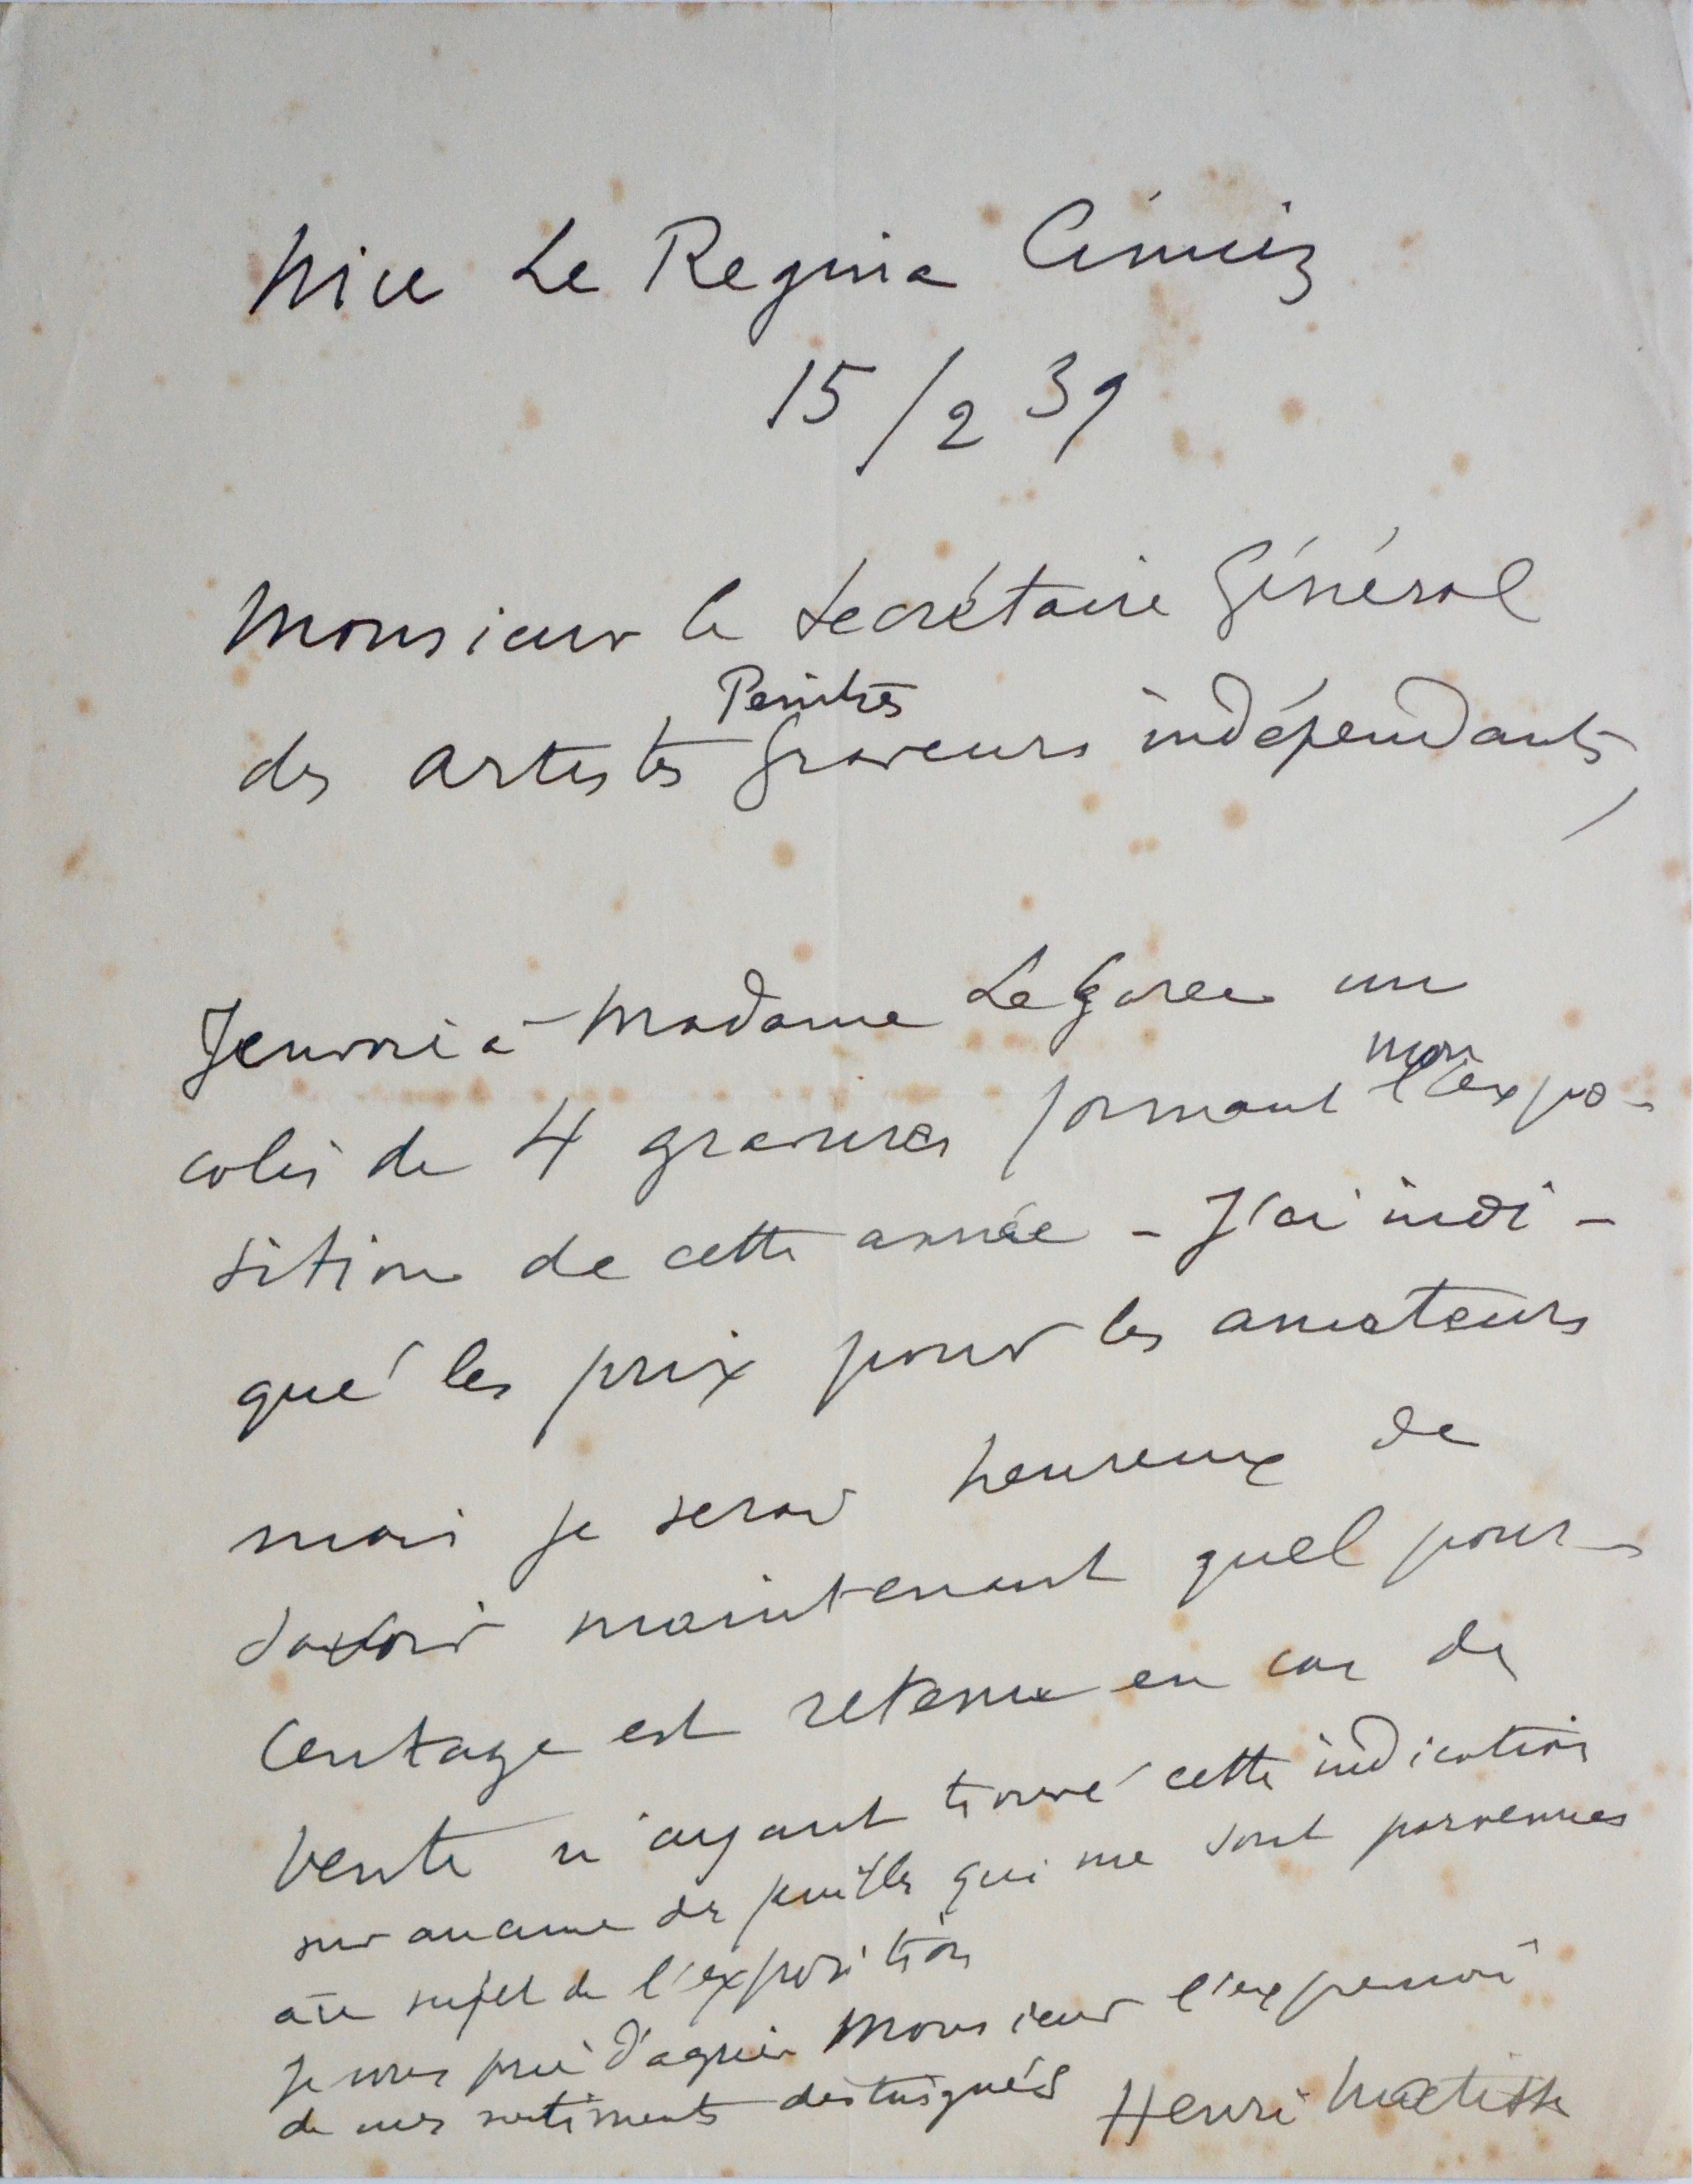 Nice Le Regina Cimiez
15/2 39
Monsieur le Secrétaire Général
Peintres
des artistes Graveurs indépendants,
J'envoie à Madame Le Garrec un
mon
colis de 4 gravures formant l'expo-
sition de cette année - J'ai indi-
qué les prix pour les amateurs
mais je serai heureux de
savoir maintenant quel pour-
centage est retenu en cas de
vente n'ayant trouvé cette indication
sur aucune des feuilles qui me sont parvenues
au sujet de l'exposition
Je vous prie d'agréer Monsieur l'expression
de mes sentiments distingués
Henri Matisse